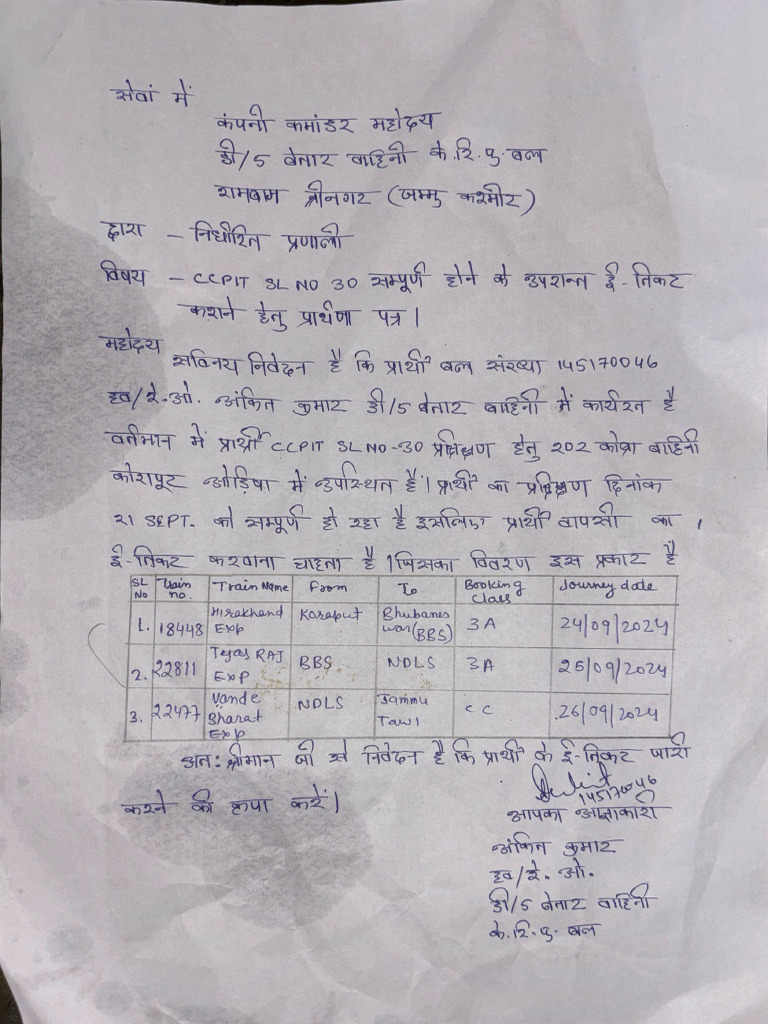 सेवां में
कंपनी कमांडर महोदय
डी/5 बेतार वाहिनी के.रि.पु.बल
रामबाग श्रीनगर (जम्मु कश्मीर)
द्वारा - निर्धारित प्रणाली
विषय - CCPIT SL NO 30 सम्पूर्ण होने के उपरान्त ई-टिकट
कराने हेतु प्रार्थणा पत्र।
महोदय
सविनय निवेदन है कि प्रार्थी बल संख्या 145170046
हव/रे.ओ. अंकित कुमार डी/5 बेतार वाहिनी में कार्यरत है
वर्तमान में प्रार्थी CCPIT SL NO-30 प्रशिक्षण हेतु 202 कोब्रा वाहिनी
कोरापूट ओड़िषा में उपस्थित है। प्रार्थी का प्रशिक्षण दिनांक
21 SEPT. को सम्पूर्ण हो रहा है इसलिए प्रार्थी वापसी का
ई-टिकट करवाना चाहता है। जिसका विवरण इस प्रकार है
SL No Train no. Train Name From To Booking Class Journey date
1. 18448 Hirakhand Exp Koraput Bhubaneswar (BBS) 3A 24/09/2024
2. 22811 Tejas RAJ EXP BBS NDLS 3A 25/09/2024
3. 22477 Vande Bharat Exp NDLS Jammu Tawi CC 26/09/2024
अत: श्रीमान जी से निवेदन है कि प्रार्थी के ई-टिकट जारी
करने की कृपा करें।
145170046
आपका आज्ञाकारी
अंकित कुमार
हव/रे. ओ.
डी/5 बेतार वाहिनी
के.रि.पु बल